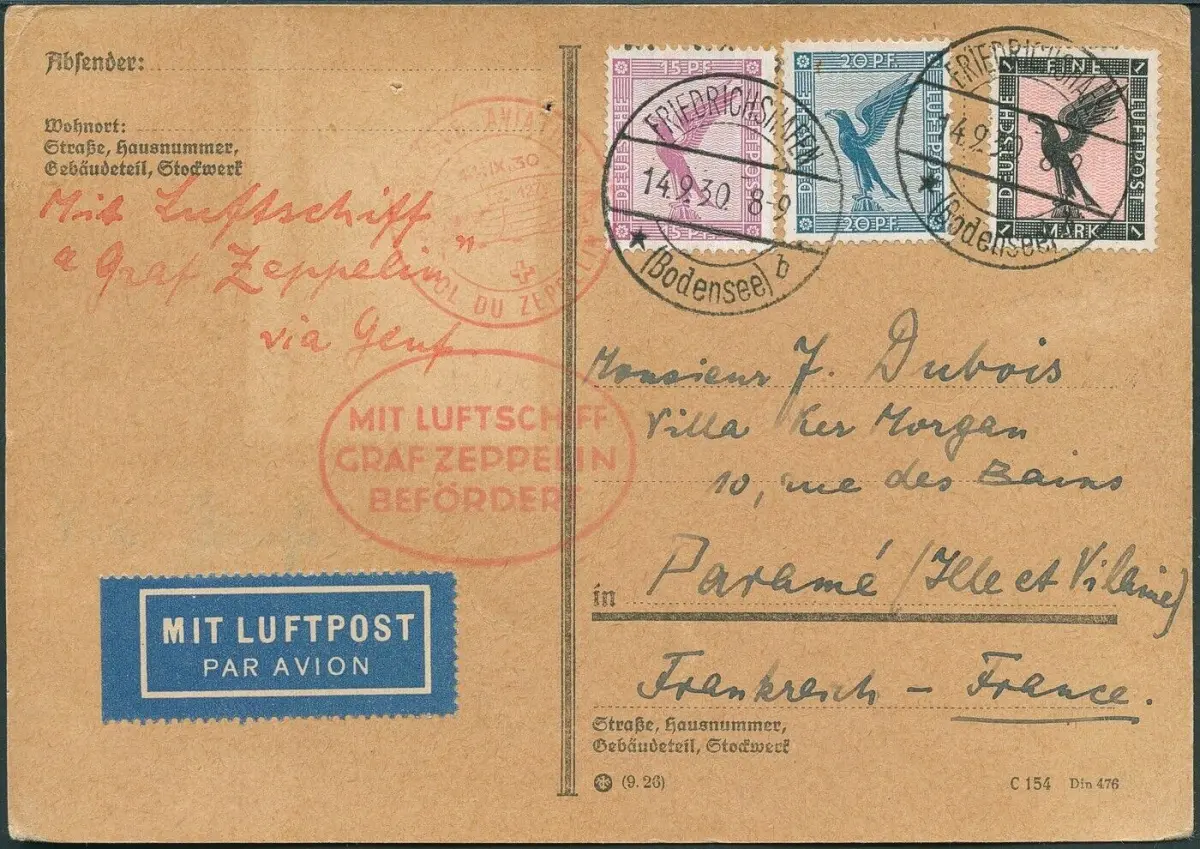 Absender:
Wohnort:
Straße, Hausnummer,
Gebäudeteil, Stockwerk
Mit Luftschiff
"Graf Zeppelin"
via Genf.
AVIA
IX.30
VOL DU ZEPPELIN
MIT LUFTSCHIFF
GRAF ZEPPELIN
BEFÖRDERT
MIT LUFTPOST
PAR AVION
15·PF.
DEUTSCHE LUFTPOST
15·PF.
20·PF.
DEUTSCHE LUFTPOST
20·PF.
1 EINE 1
DEUTSCHE LUFTPOST
1 MARK 1
FRIEDRICHSHAFEN
14.9.30. 8-9
(Bodensee) b
FRIEDRICHSHAFEN
14.9.30 8-9
(Bodensee)
Monsieur J. Dubois
Villa Ker Morgan
10, rue des Bains
in Paramé (Ille et Vilaine)
Frankreich – France.
Straße, Hausnummer,
Gebäudeteil, Stockwerk
(9. 26)
C 154 Din 476